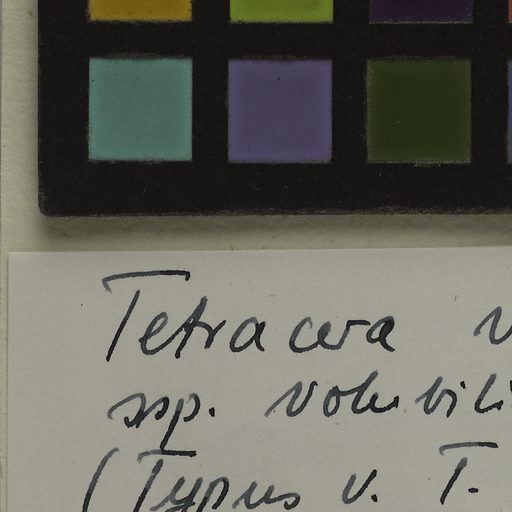 Tetracera v
ssp. volubili
(Typus v. T.